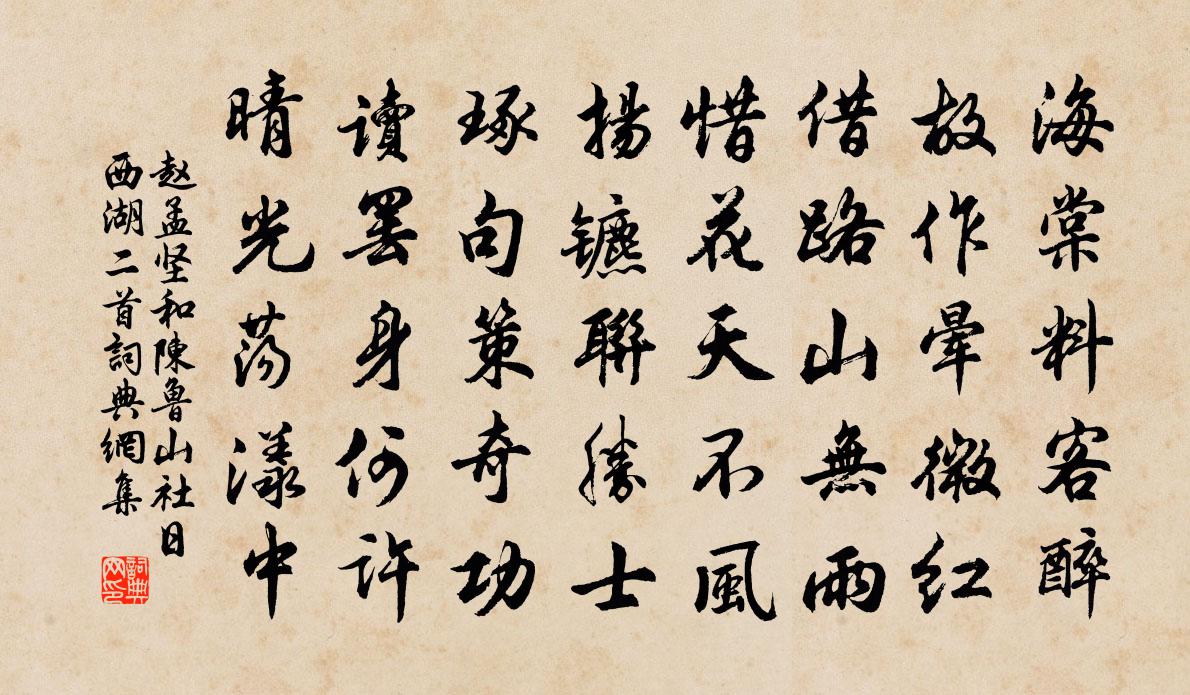 海棠料客醉
故作暈微红
借路山無雨
惜花天不風
揚镳聯勝士
琢句策奇功
讀罢身何許
晴光荡漾中
赵孟坚和陳魯山社日
西湖二首詞典網集
詞典网印